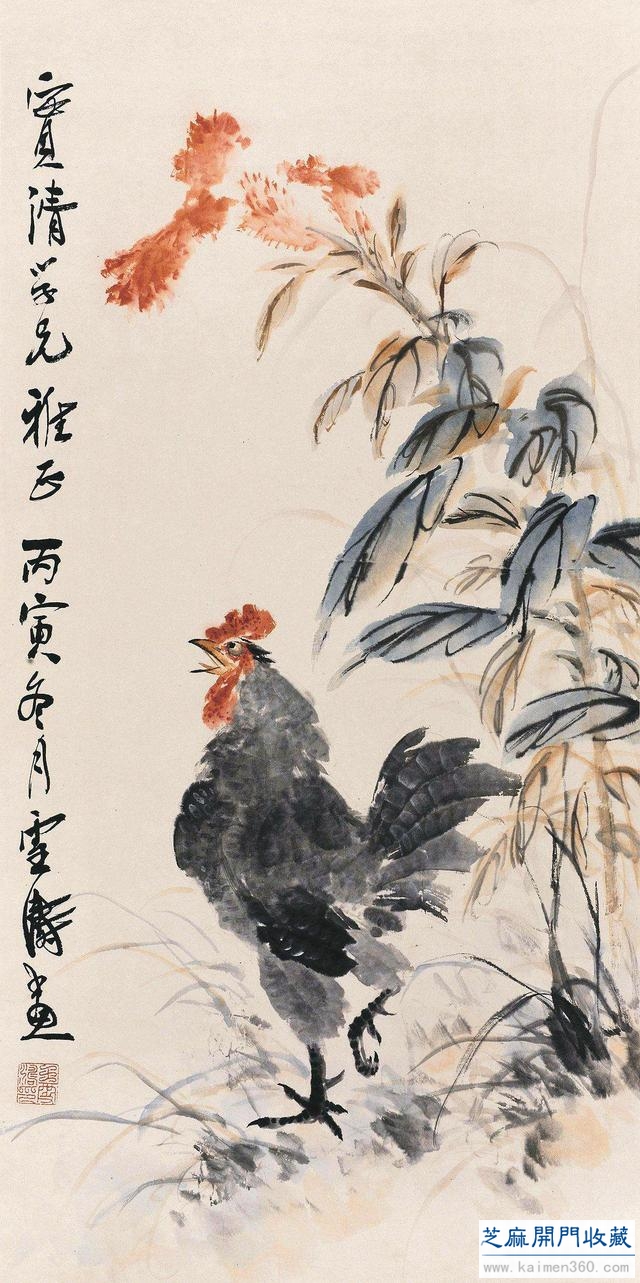 寶清学兄雅正丙寅冬月雪濤畫
芝麻開門收藏
www.kaimen360.com